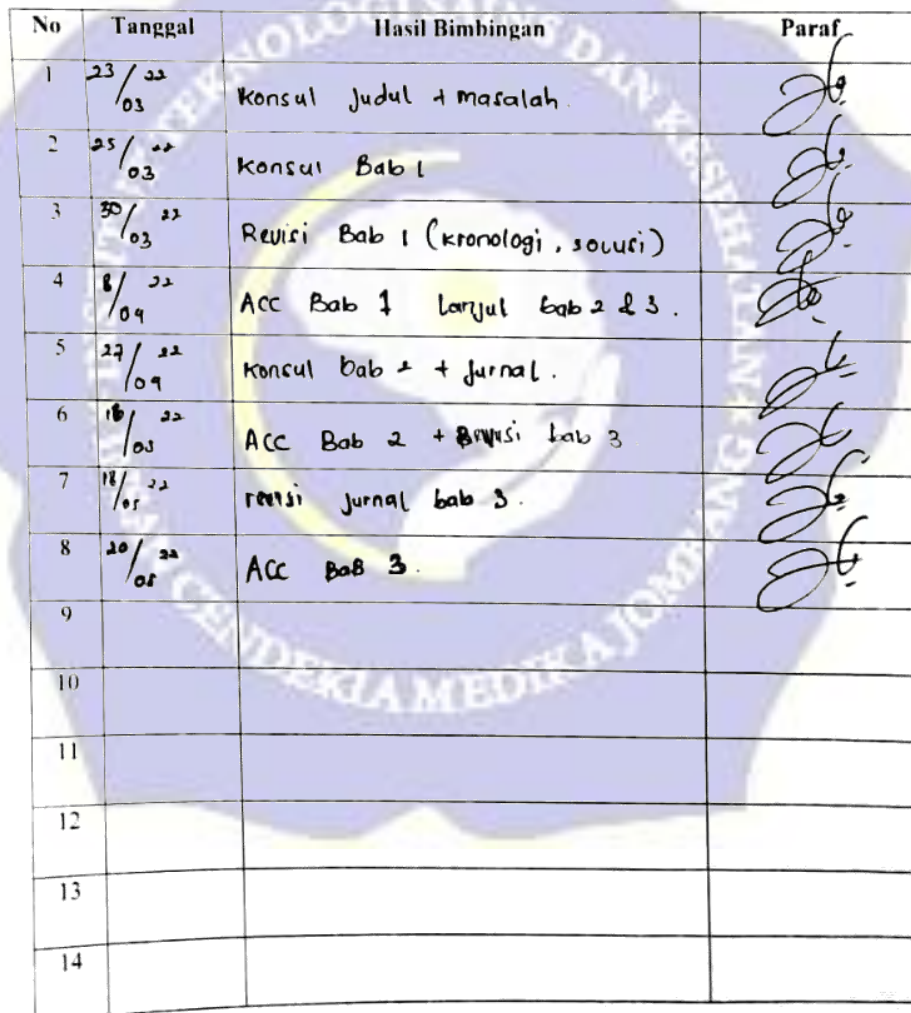 No Tanggal Hasil Bimbingan Paraf
1 23/03 22 Konsul Judul + masalah.
2 25/03 22 Konsul Bab 1
3 30/03 22 Revisi Bab 1 (kronologi, solusi)
4 8/04 22 ACC Bab 1 Lanjut bab 2 & 3.
5 27/04 22 Konsul bab 2 + Jurnal.
6 22 ACC Bab 2 + Revisi bab 3
7 18/05 22 revisi Jurnal bab 3.
8 20/05 22 ACC BaB 3.
9
10
11
12
13
14
TEKNOLOGI
DAN KESEHATAN
CENDEKIA MEDIKA JOMBANG